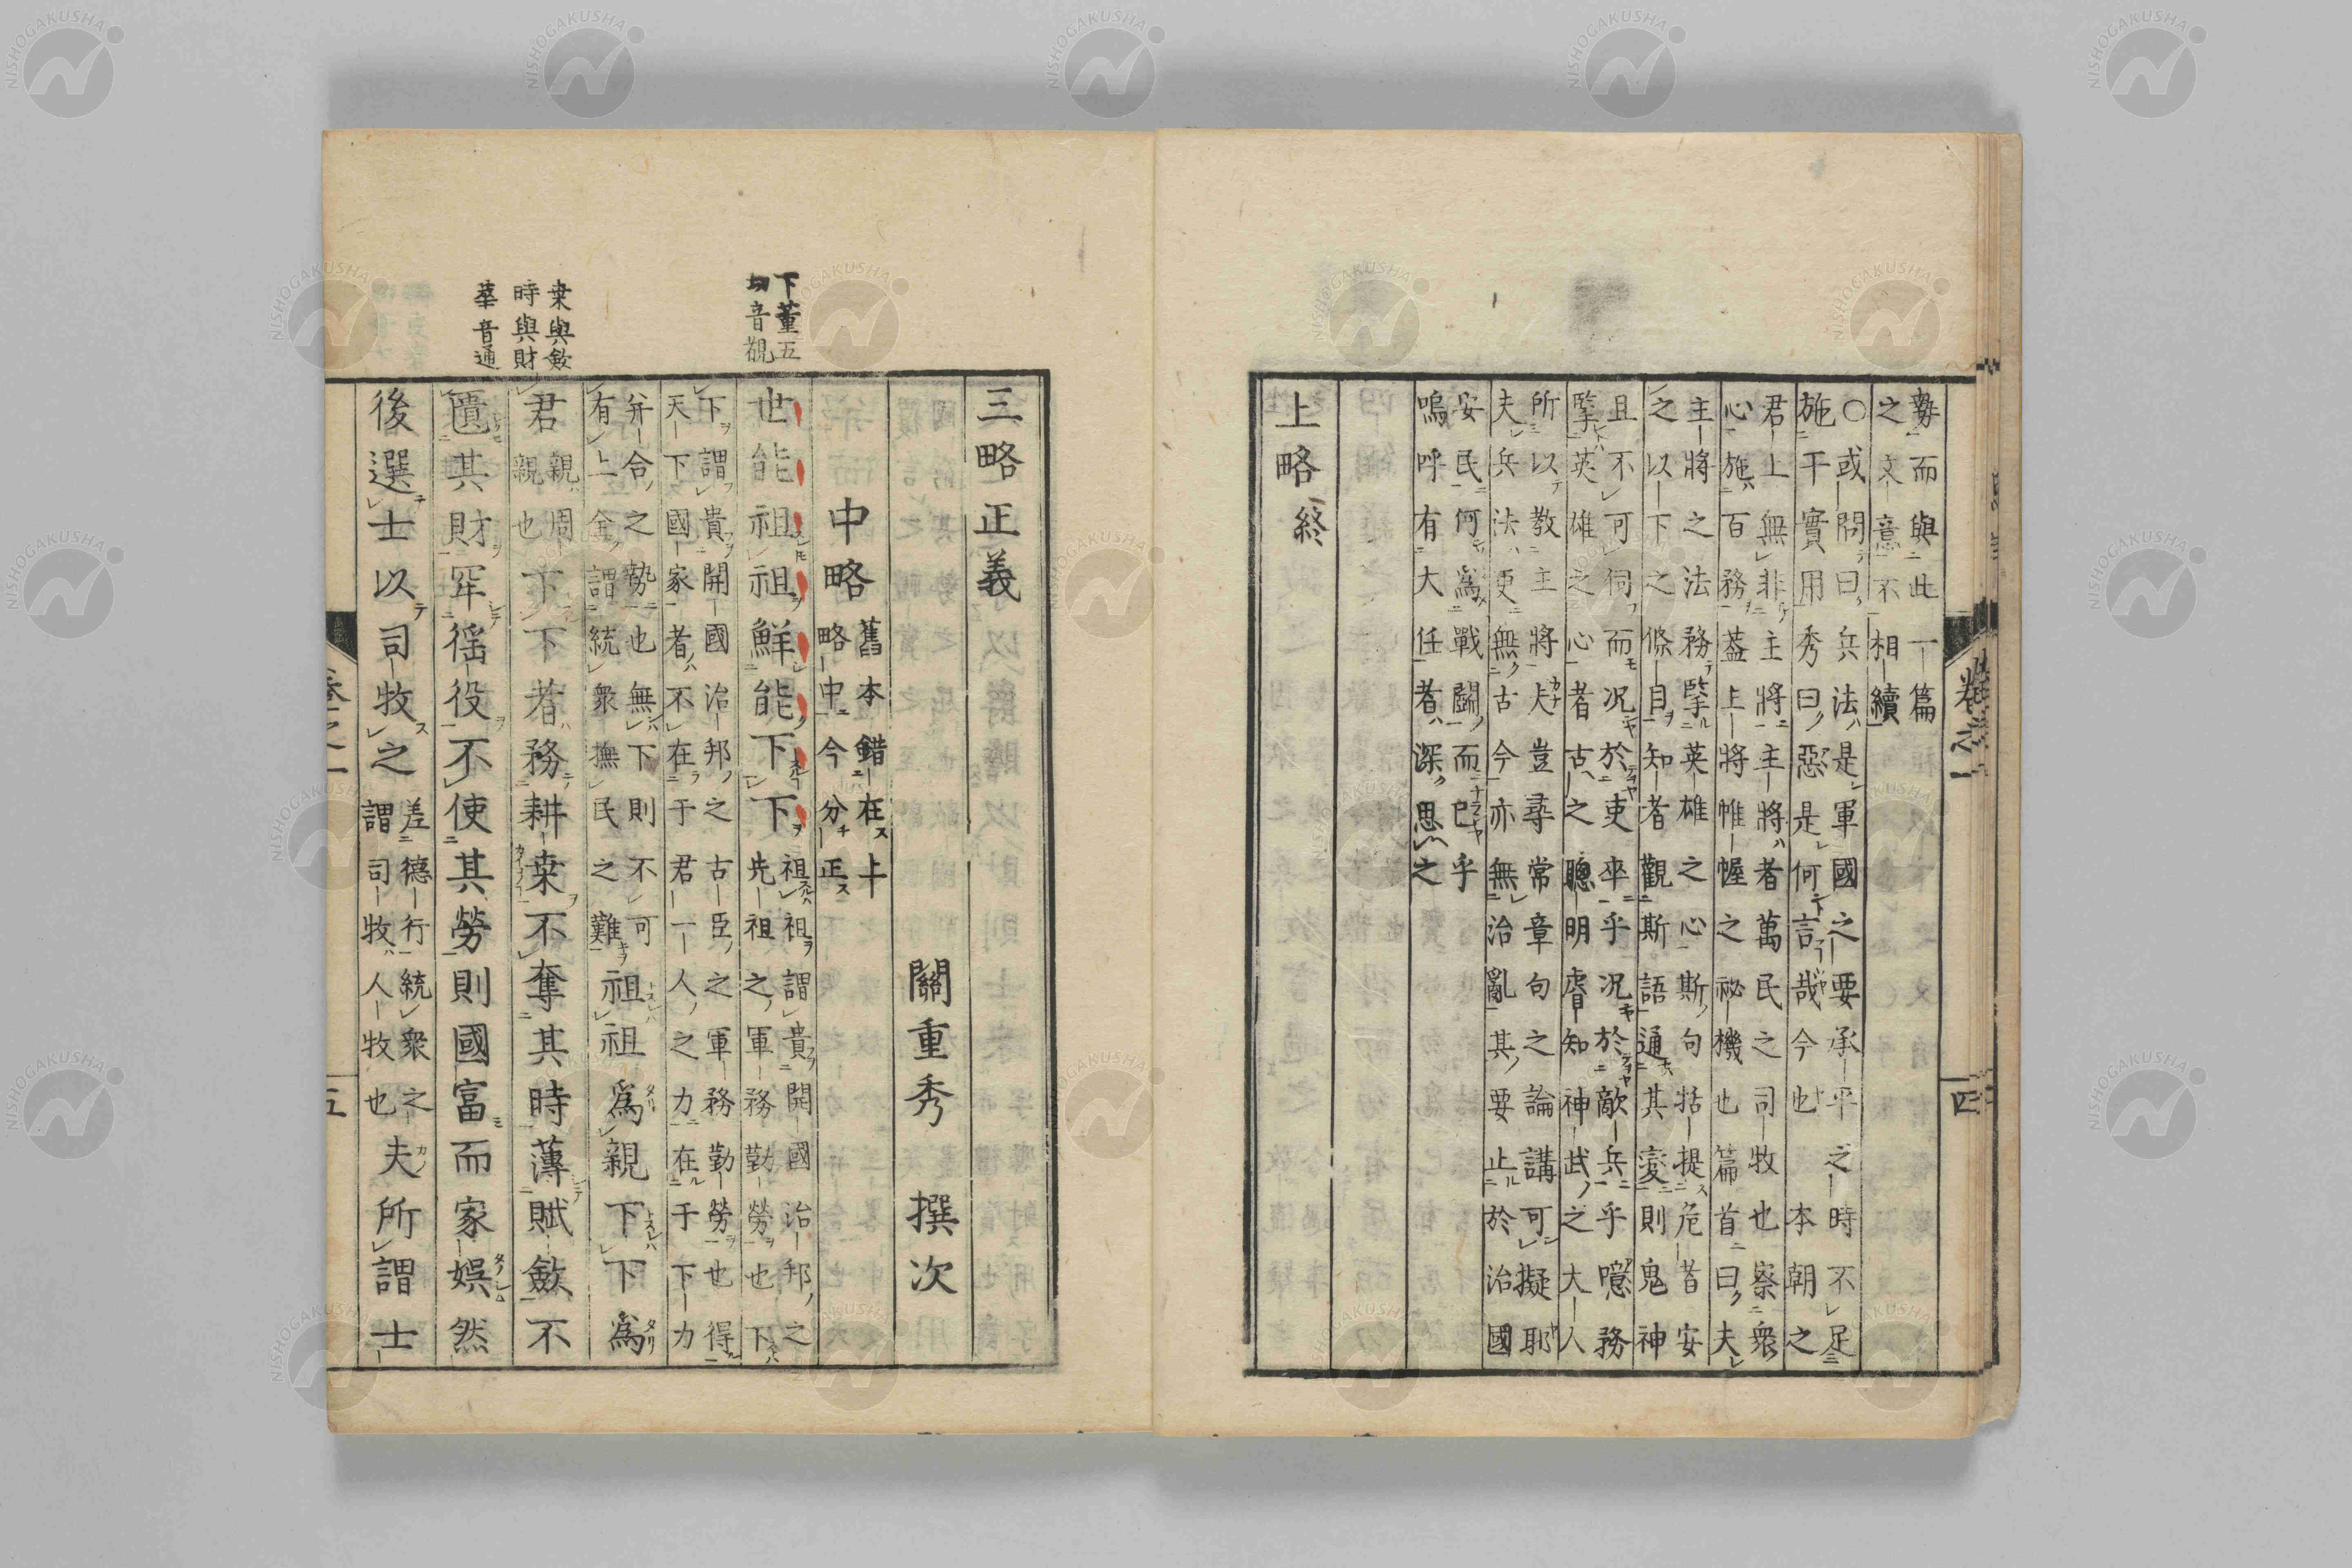 勢而與此一篇
之文意不相續
○或問曰兵法是軍國之要承平之時不足
施干實用秀曰惡是何言哉今也本朝之
君上無非主將主將者萬民之司牧也察衆
心施百務蓋上將帷幄之祕機也篇首曰夫
主將之法務擥英雄之心斯句括提危昔安
之以下之條目知者觀斯語通其変則鬼神
且不可伺而况於吏卒乎况於敵兵乎噫務
擥英雄之心者古之聰明睿知神武之大人
所以教主將夫豈尋常章句之論講可擬耶
夫兵法更無古今亦無治亂其要止於治國
安民何爲戰鬪而已乎
嗚呼有大任者深思之
上略終
卷之一
四
三略正義
關重秀 撰次
中略
舊本錯在上
略中今分正
下董五
切音覩
世能祖祖鮮能下下
祖祖謂貴開國治邦之
先祖之軍務勤勞也下
下謂貴開國治邦之古臣之軍務勤勞也得
天下國家者不在于君一人之力在于下力
弁合之勢也無下則不可
有上謂統衆撫民之難
祖祖爲親下下爲
桒與斂
時與財
華音通
君
親親周
親也
下下者務耕桒不奪其時薄賦斂不
匱其財罕徭役不使其勞則國富而家娯然
後選士以司牧之
差德行統衆之
謂司牧人牧也
夫所謂士